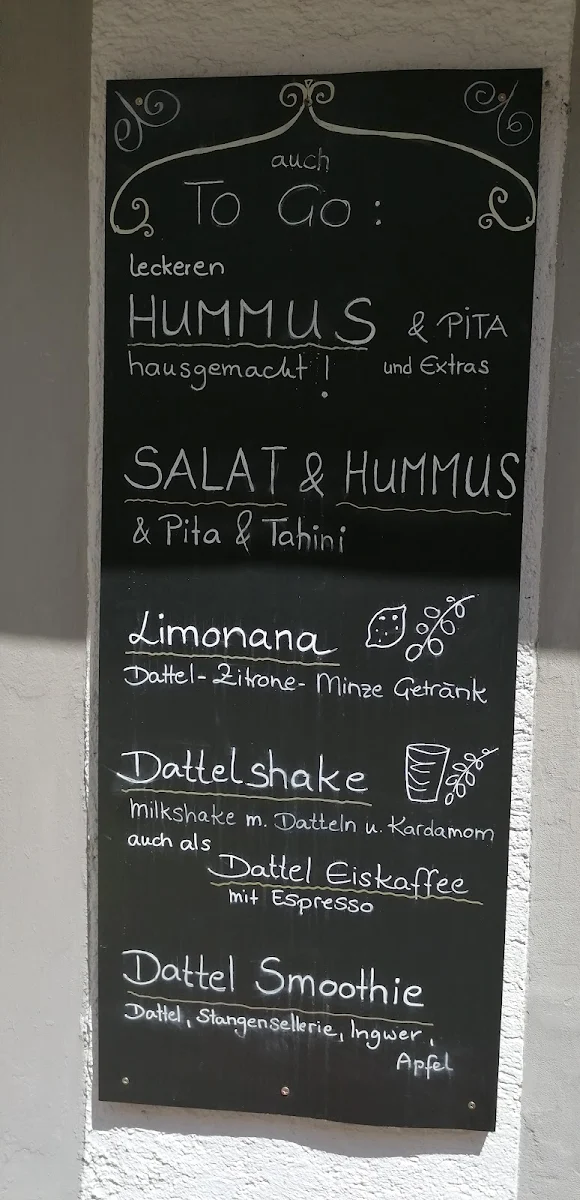 auch
To Go :
leckeren
HUMMUS & PiTA
hausgemacht ! und Extras
SALAT & HUMMUS
& Pita & Tahini
Limonana
Dattel-Zitrone-Minze Getränk
Dattelshake
Milkshake m. Datteln u. Kardamom
auch als
Dattel Eiskaffee
mit Espresso
Dattel Smoothie
Dattel, Stangensellerie, Ingwer,
Apfel